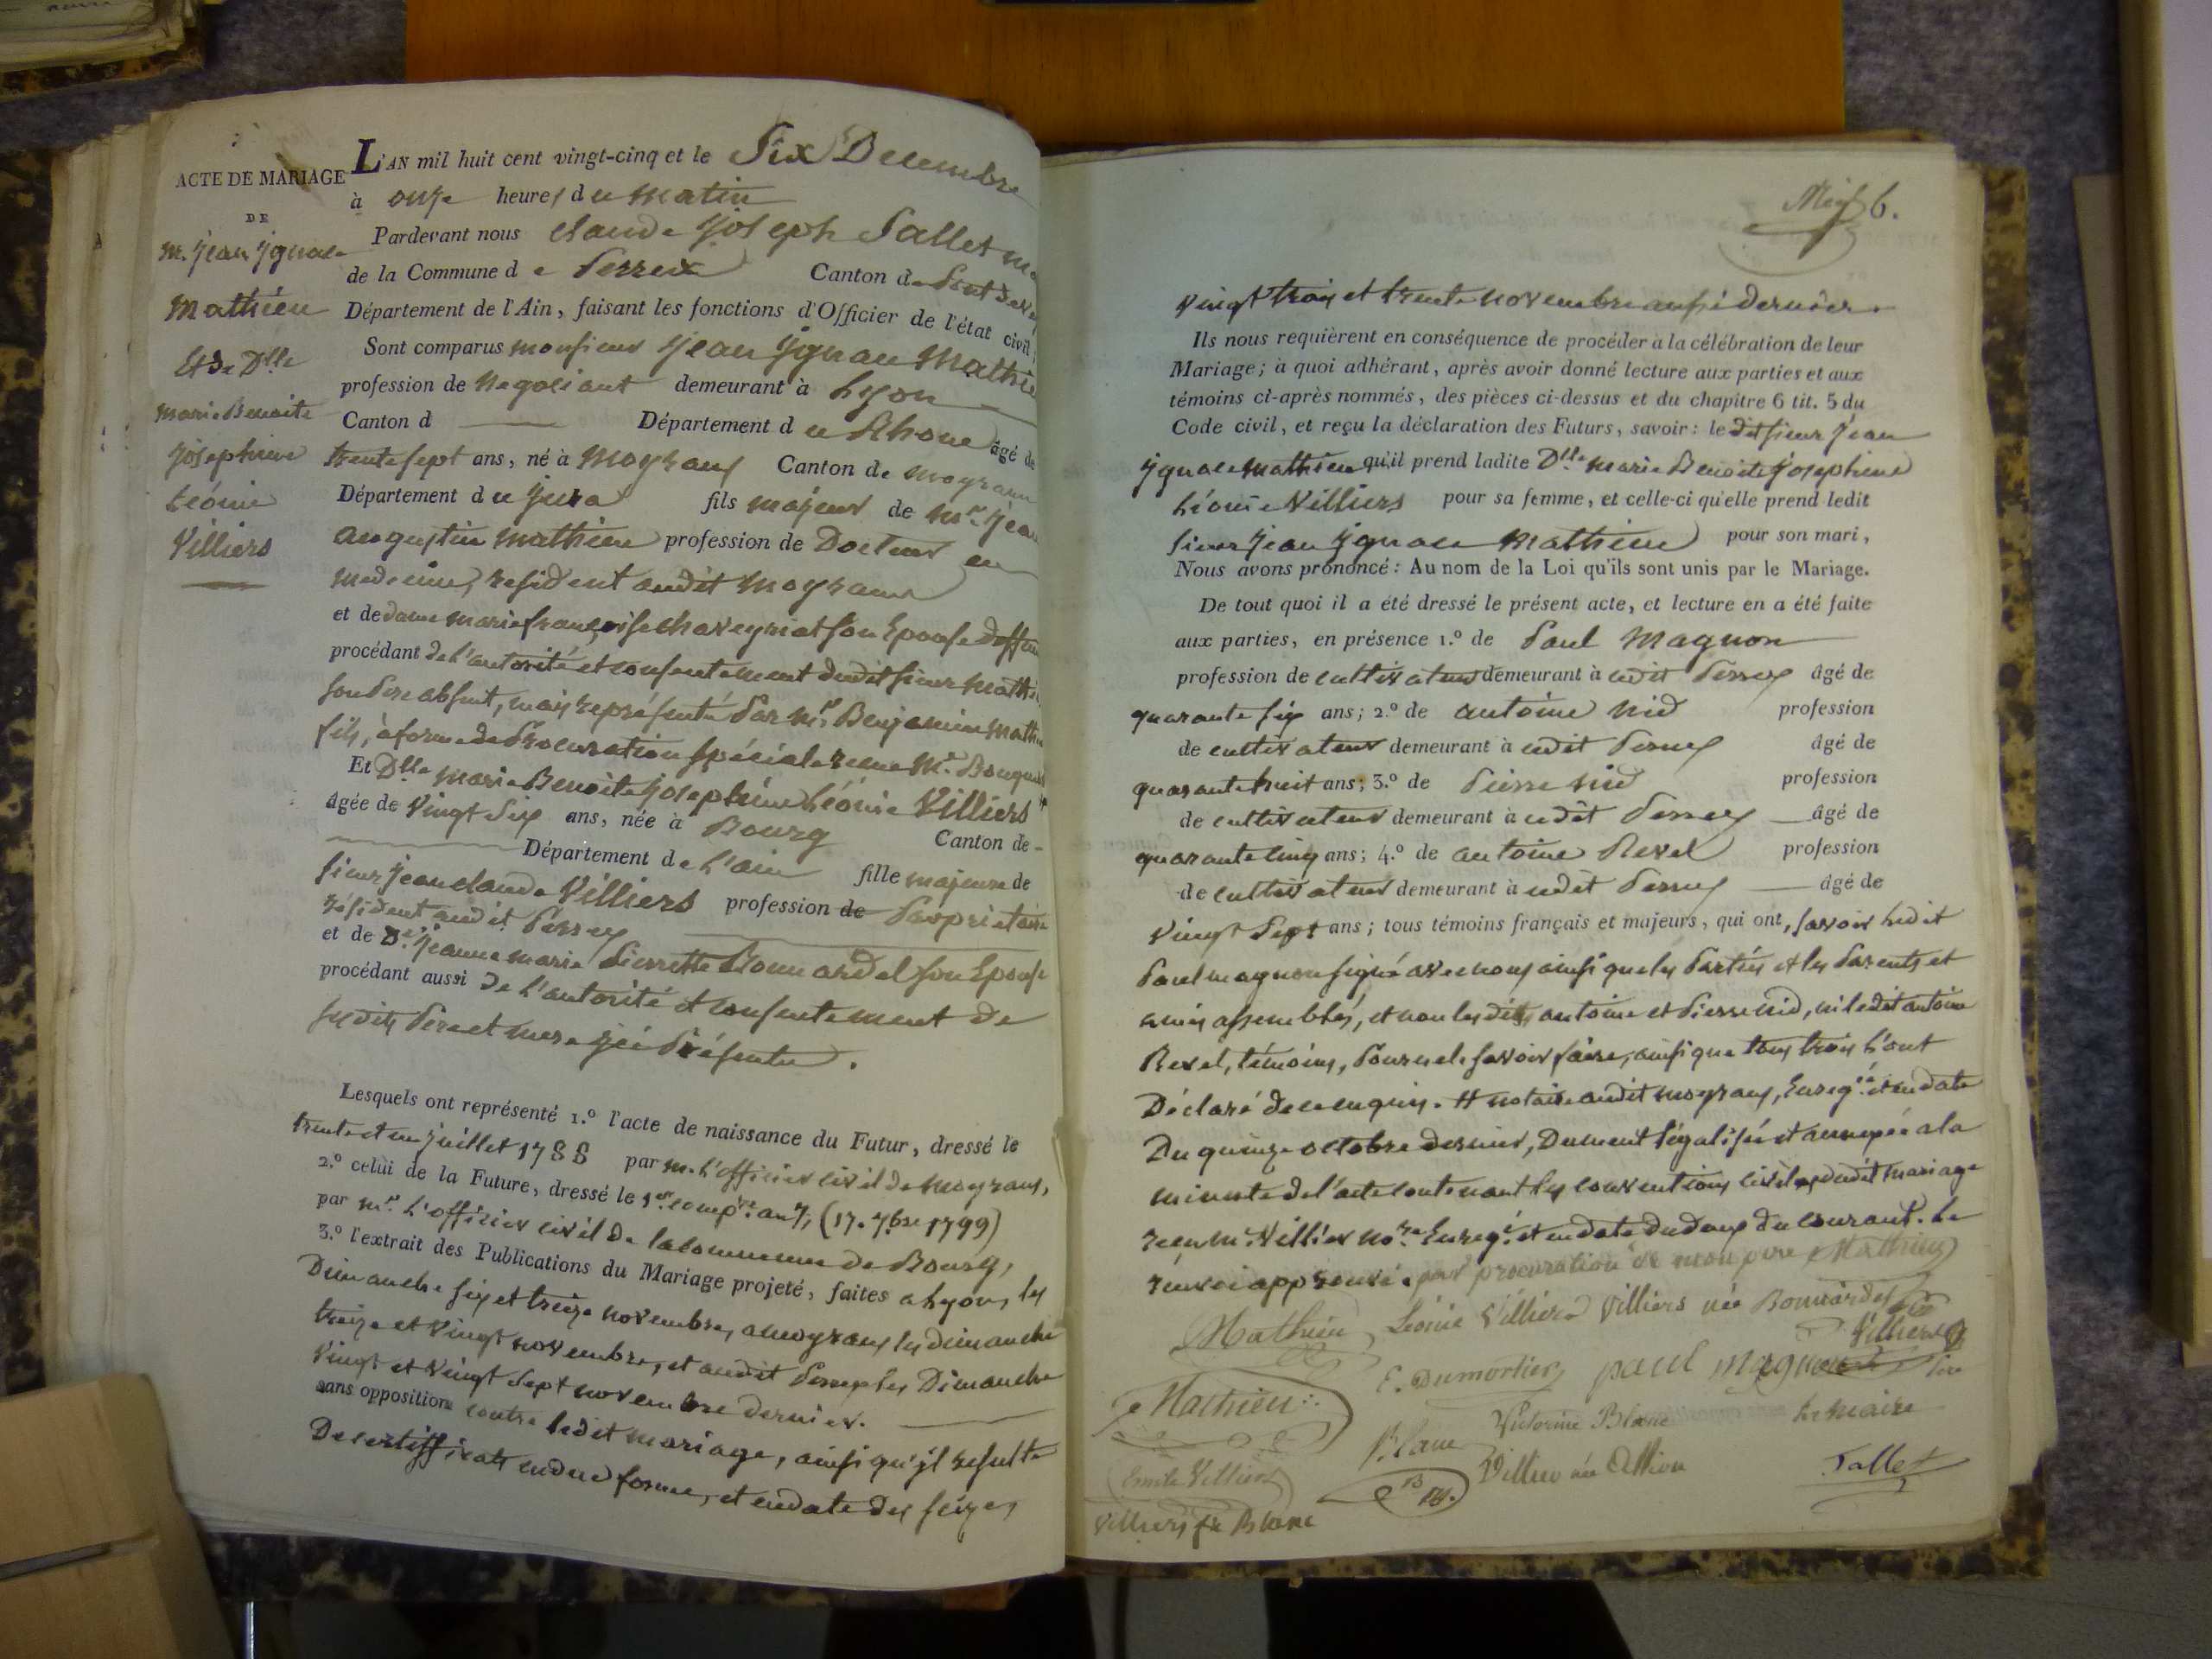 ACTE DE MARIAGE
DE
M. Jean Ygnace
Mathieu
Et de Dlle
Marie Benoite
Josephine
Léonie
Villiers
L'AN mil huit cent vingt-cinq et le Six Decembre
à onze heures du matin
Pardevant nous Claude Joseph Sallet
de la Commune de Perrex Canton de Pont de
Département de l'Ain, faisant les fonctions d'Officier de l'état civil;
Sont comparus monsieur Jean Ygnace Mathieu
profession de Negociant demeurant à Lyon
Canton d Département du Rhone âgé de
trente sept ans, né à Moyrans Canton de Moyrans
Département du Jura fils majeur de Mr. Jean
augustin Mathieu profession de Docteur en
medecine, resident audit Moyrans
et de dame marie françoise Chaveyriat son Epouse
procédant de l'autorité et consentement dudit sieur
son Pere absent, mais représenté Par Mr. Benjamin
fils, à forme de Procuration spéciale recue Mr.
Et Dlle Marie Benoite Josephine Léonie Villiers
âgée de vingt six ans, née à Bourg Canton de
Département de L'ain fille majeure de
sieur Jean Claude Villiers profession de Proprietaire
résident audit Perrex
et de De. Jeanne Marie Pierrette Bonnardel son Epouse
procédant aussi de l'autorité et consentement de
sesdits Pere et mere ici Présents.
Lesquels ont représenté 1.º l'acte de naissance du Futur, dressé le
trente et un juillet 1788 par M. l'officier civil de Moyrans,
2.º celui de la Future, dressé le 1er. compre. an 7, (17. 7bre 1799)
par Mr. L'officier civil de la commune de Bourg,
3.º l'extrait des Publications du Mariage projeté, faites a Lyon, les
Dimanche six et treize novembre, a moyrans les dimanche
treize et vingt novembre, et audit Perrex les Dimanche
vingt et vingt sept novembre dernier.
sans opposition contre ledit mariage, ainsi qu'il resulte
De certifficats en due forme, et en date des seize,
6.
vingt trois et trente novembre aussi dernier.
Ils nous requièrent en conséquence de procéder à la célébration de leur
Mariage; à quoi adhérant, après avoir donné lecture aux parties et aux
témoins ci-après nommés, des pièces ci-dessus et du chapitre 6 tit. 5 du
Code civil, et reçu la déclaration des Futurs, savoir: le dit sieur Jean
Ygnace Mathieu qu'il prend ladite Dlle Marie Benoite Josephine
Léonie Villiers pour sa femme, et celle-ci qu'elle prend ledit
sieur Jean Ygnace Mathieu pour son mari,
Nous avons prononcé: Au nom de la Loi qu'ils sont unis par le Mariage.
De tout quoi il a été dressé le présent acte, et lecture en a été faite
aux parties, en présence 1.º de Paul Magnon
profession de cultivateur demeurant à udit Perrex âgé de
quarante six ans; 2.º de antoine Nid profession
de cultivateur demeurant à udit Perrex âgé de
quarante huit ans; 3.º de Pierre Nid profession
de cultivateur demeurant à udit Perrex âgé de
quarante cinq ans; 4.º de antoine Revel profession
de cultivateur demeurant à udit Perrex âgé de
vingt Sept ans; tous témoins français et majeurs, qui ont, savoir ledit
Paul magnon signé avec nous ainsi que les Parties et les Parents et
amis assemblés, et non lesdits antoine et Pierre Nid, ni ledit antoine
Revel, témoins, Pour ne le savoir faire, ainsi que tous trois l'ont
Déclaré de ce enquis. # notaire audit moyrans, Enregré. et en date
Du quinze octobre dernier, Dument légalisée et annexée a la
minute de l'acte contenant les conventions civiles dudit mariage
recu Mr. Villier nore. Enregé. et en date du deux du courant. le
renvoi approuvé. par procuration de mon père Mathieu
Mathieu Léonie Villiers Villiers née Bonnardel
Villiers
E. Dumortier paul magnon père
Mathieu
Victorine Blanc Le maire
Blanc
Emile Villiers Sallet
Villiers fe Blanc